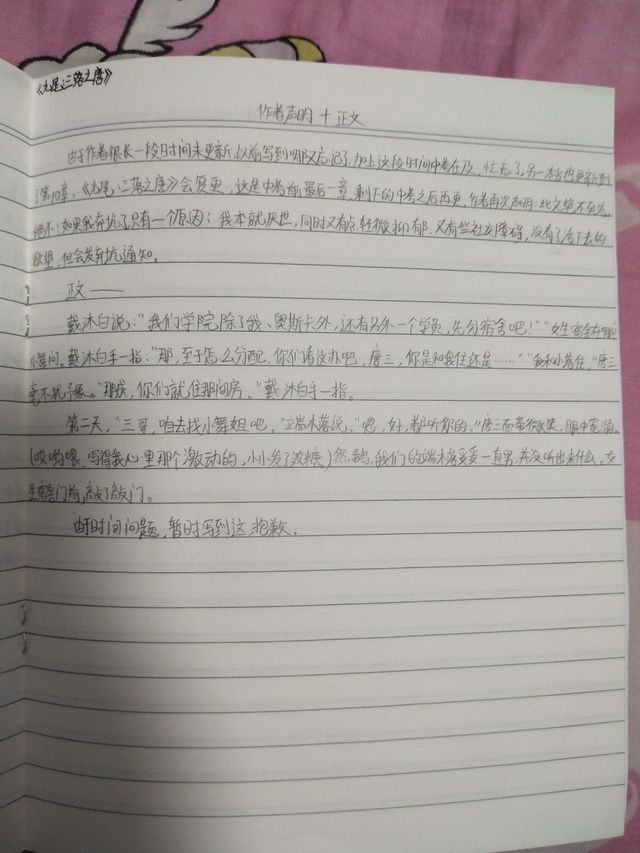 《九尾:三落之唐》
作者声明+正文
由于作者很长一段时间未更新,以前写到哪又忘记了,加上这段时间中考在及,忙忘了,另一本也更新到
了第10章,《九尾:三落之唐》会复更,这是中考前最后一章,剩下的中考之后再更,作者再次声明:此文绝不弃坑,
如果我弃坑了只有一个原因:我本就厌世,同时又有点轻微抑郁,又有些社交障碍,没有了活下去的
欲望,但会发弃坑通知。
正文——
戴沐白说:“我们学院除了我、奥斯卡外,还有另外一个学员,先分宿舍吧!”“女生宿舍在哪”
小舞问。戴沐白手一指:“那,至于怎么分配,你们看没办吧,唐三,你是和我住还是……”“我和小落住。”唐三
毫不犹豫。“那成,你们就住那间房。”戴沐白手一指。
第二天,“三哥,咱去找小舞姐吧。”端木落说。“嗯,好,都听你的。”唐三面带微笑,眼中宠溺。
(哎哟喂,写得我心里那个激动的,小小发了波糖)然鹅,我们的端木落妥妥一直男,并没听出来什么。女
生宿舍门前,敲了敲门。
由于时间问题,暂时写到这,抱歉.